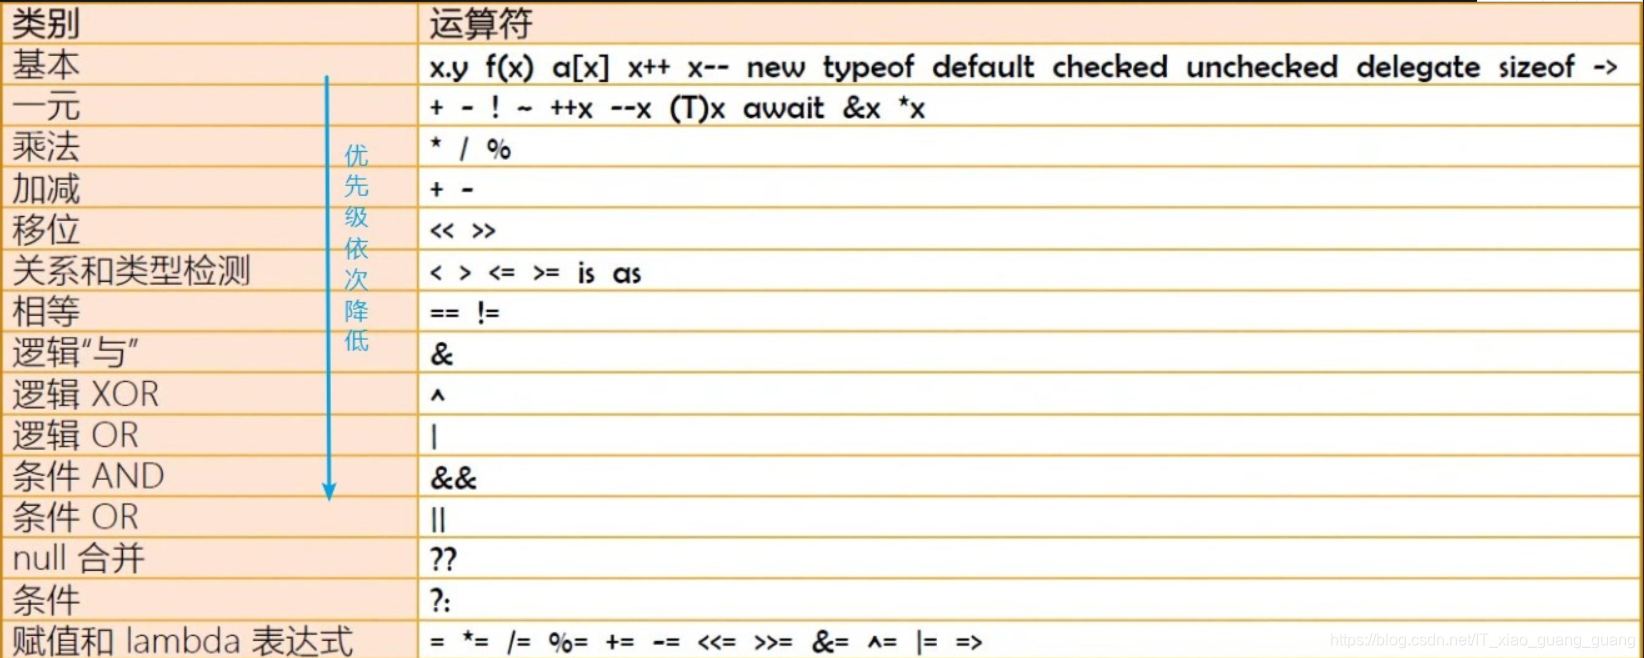 类别 运算符
基本 x.y f(x) a[x] x++ x-- new typeof default checked unchecked delegate sizeof ->
一元 + - ! ~ ++x --x (T)x await &x *x
乘法 * / %
加减 + -
移位 << >>
关系和类型检测 < > <= >= is as
相等 == !=
逻辑“与” &
逻辑 XOR ^
逻辑 OR |
条件 AND &&
条件 OR ||
null 合并 ??
条件 ?:
赋值和 lambda 表达式 = *= /= %= += -= <<= >>= &= ^= |= =>
优先级依次降低
https://blog.csdn.net/IT_xiao_guang_guang